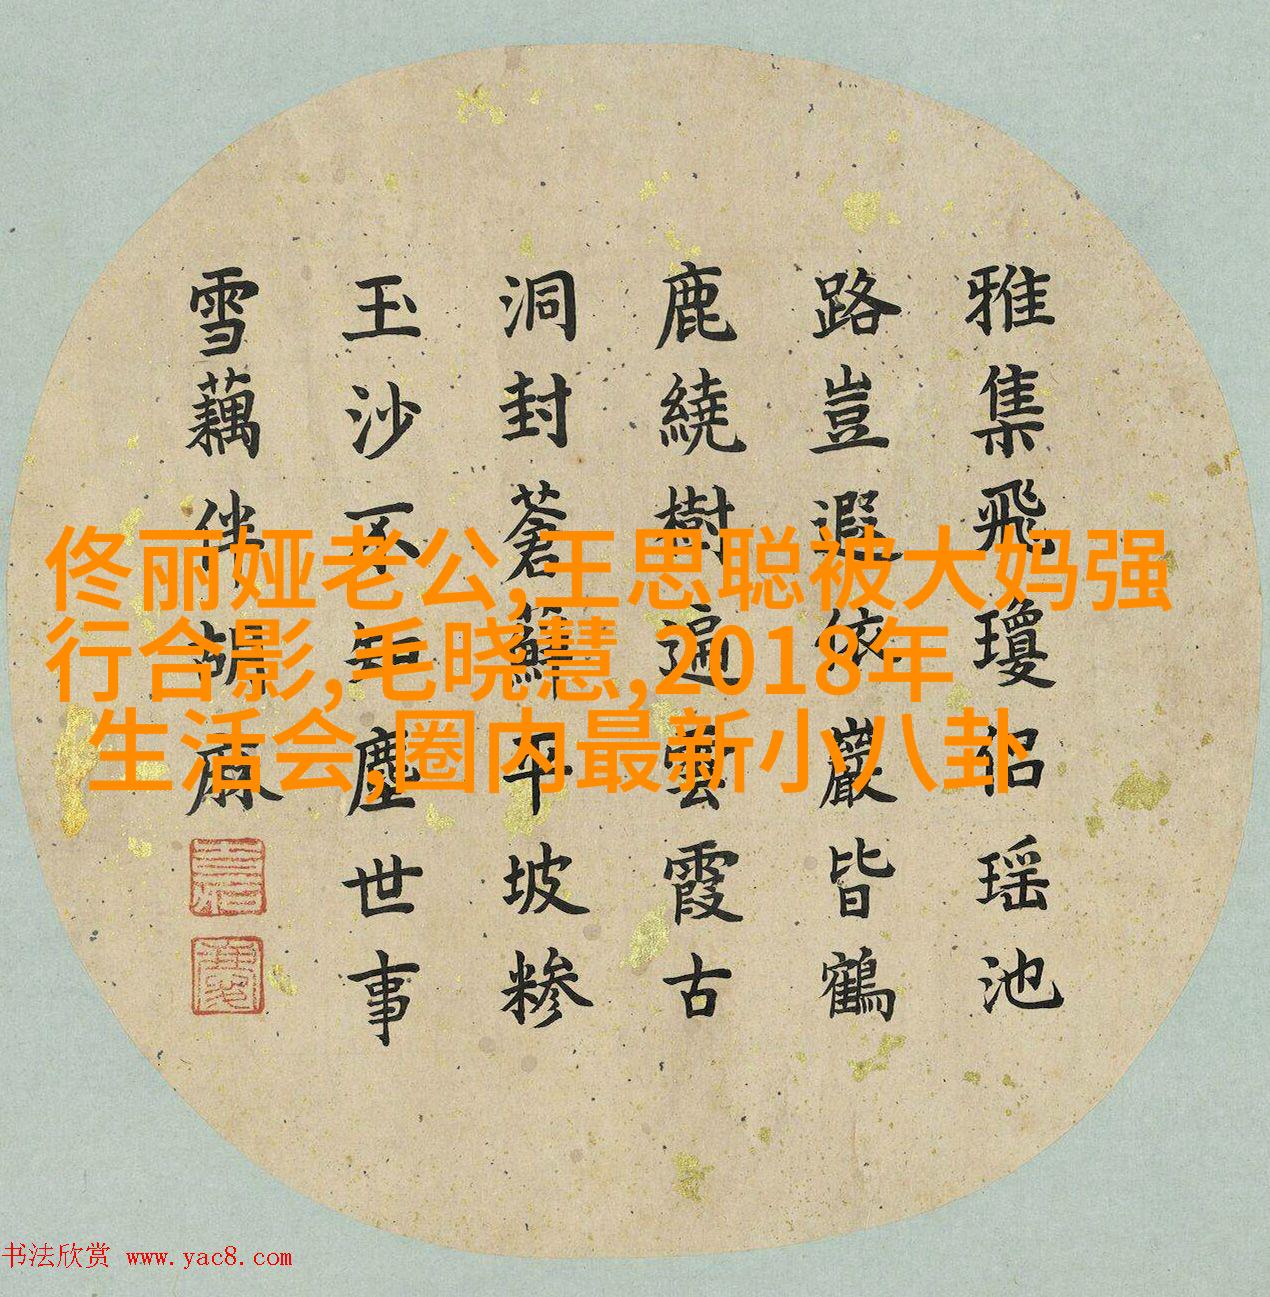 雅集飛瓊紹瑶池
路豈遐依巖皆鶴
鹿繞樹遍雲霞古
洞封蒼蘚平坡糁
玉沙不知塵世事
雪藕伴胡麻
佟丽娅老公,王思聪被大妈强
行合影,毛晓慧,2018年
生活会,圈内最新小八卦
书法欣赏 www.yac8.com